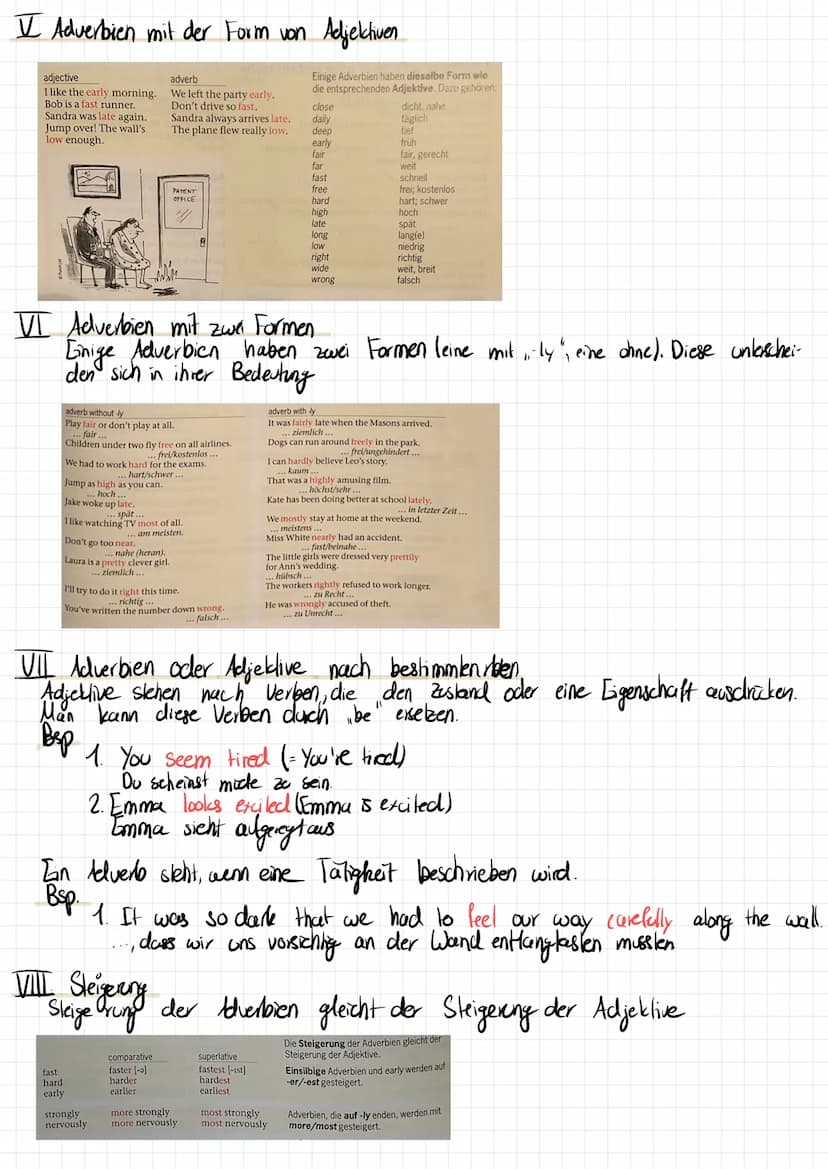 V Adverbien mit der Form von Adjektiven
adjective adverb
I like the early morning. We left the party early.
Bob is a fast runner. Don't drive so fast.
Sandra was late again. Sandra always arrives late.
Jump over! The wall's The plane flew really low.
low enough.
PATENT
OFFICE
Einige Adverbien haben dieselbe Form wie
die entsprechenden Adjektive. Dazu gehören:
close dicht, nahe
daily täglich
deep tief
early früh
fair fair, gerecht
far weit
fast schnell
free frei; kostenlos
hard hart; schwer
high hoch
late spät
long lang(e)
low niedrig
right richtig
wide weit, breit
wrong falsch
VI Adverbien mit zwei Formen
Einige Adverbien haben zwei Formen (eine mit „-ly“, eine ohne). Diese unterschei-
den sich in ihrer Bedeutung
adverb without -ly adverb with -ly
Play fair or don't play at all. It was fairly late when the Masons arrived.
... fair ... ... ziemlich ...
Children under two fly free on all airlines. Dogs can run around freely in the park.
... frei/kostenlos ... ... frei/ungehindert ...
We had to work hard for the exams. I can hardly believe Leo's story.
... hart/schwer ... ... kaum ...
Jump as high as you can. That was a highly amusing film.
... hoch ... ... höchst/sehr ...
Jake woke up late. Kate has been doing better at school lately.
... spät ... ... in letzter Zeit ...
I like watching TV most of all. We mostly stay at home at the weekend.
... am meisten. ... meistens ...
Don't go too near. Miss White nearly had an accident.
... nahe (heran). ... fast/beinahe ...
Laura is a pretty clever girl. The little girls were dressed very prettily
... ziemlich ... for Ann's wedding.
... hübsch ...
I'll try to do it right this time. The workers rightly refused to work longer.
... richtig ... ... zu Recht ...
You've written the number down wrong. He was wrongly accused of theft.
... falsch ... ... zu Unrecht ...
VII Adverbien oder Adjektive nach bestimmten
Adjektive stehen nach Verben, die den Zustand oder eine Eigenschaft ausdrücken.
Man kann diese Verben durch „be“ ersetzen.
Bsp
1. You seem tired (= You're tired)
Du scheinst müde zu sein.
2. Emma looks excited (Emma is excited)
Emma sieht aufgeregt aus
Ein Adverb steht, wenn eine Tätigkeit beschrieben wird.
Bsp.
1. It was so dark that we had to feel our way carefully along the wall.
..., dass wir uns vorsichtig an der Wand entlangtasten mussten
VIII Steigerung
Steigerung der Adverbien gleicht der Steigerung der Adjektive
comparative superlative
fast faster [-ə] fastest [-ɪst]
hard harder hardest
early earlier earliest
strongly more strongly most strongly
nervously more nervously most nervously
Die Steigerung der Adverbien gleicht der
Steigerung der Adjektive.
Einsilbige Adverbien und early werden auf
-er/-est gesteigert.
Adverbien, die auf -ly enden, werden mit
more/most gesteigert.